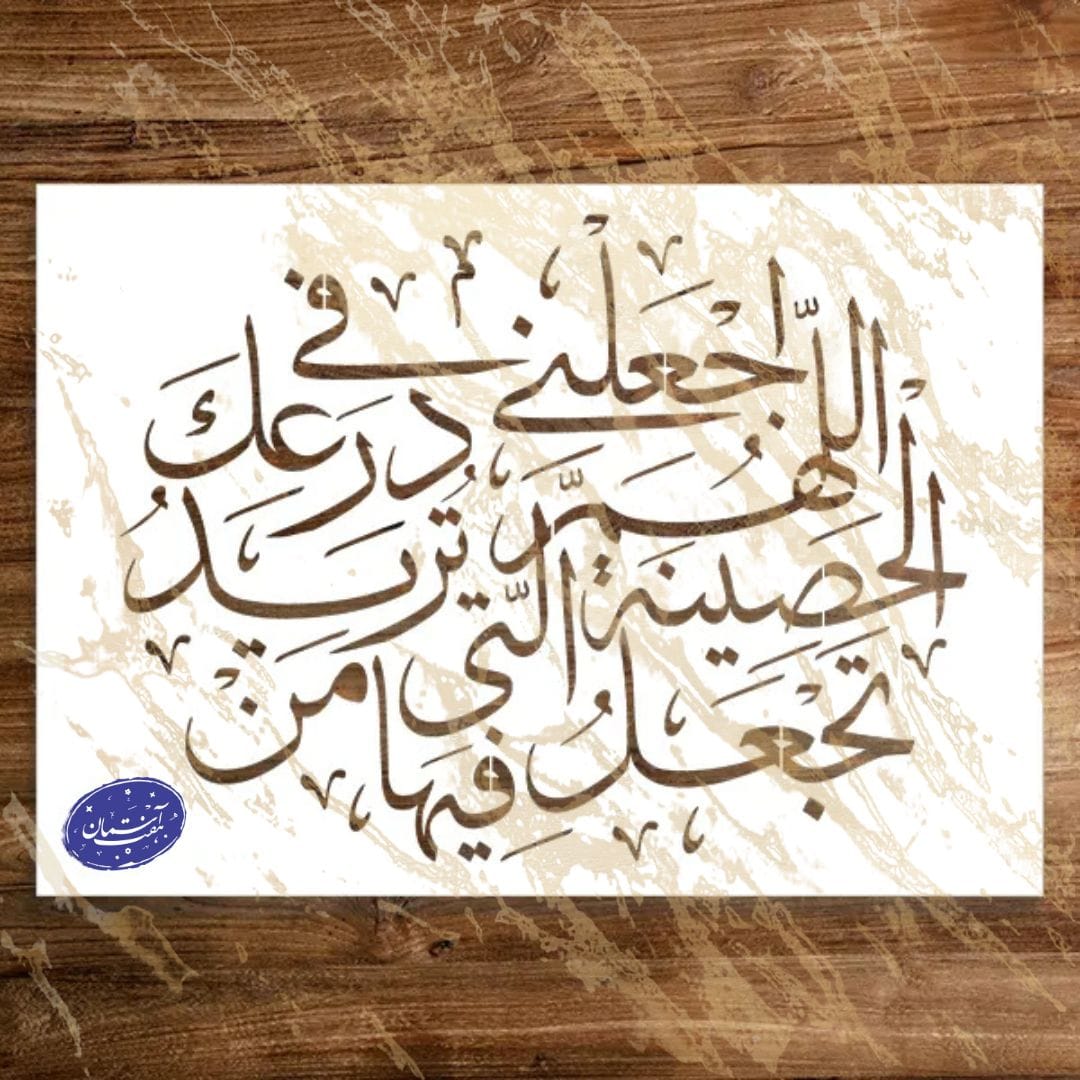 اللّهُمَّ اجْعَلْنی فی دِرْعِکَ
الْحَصینَةِ الَّتی تَجْعَلُ فیها مَنْ تُریدُ
هفت آسمان